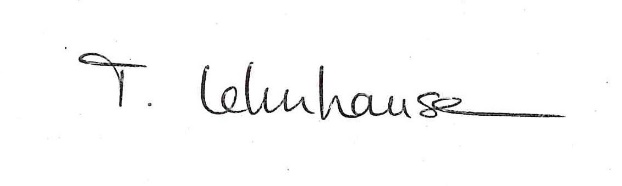 T. Lehnhausen